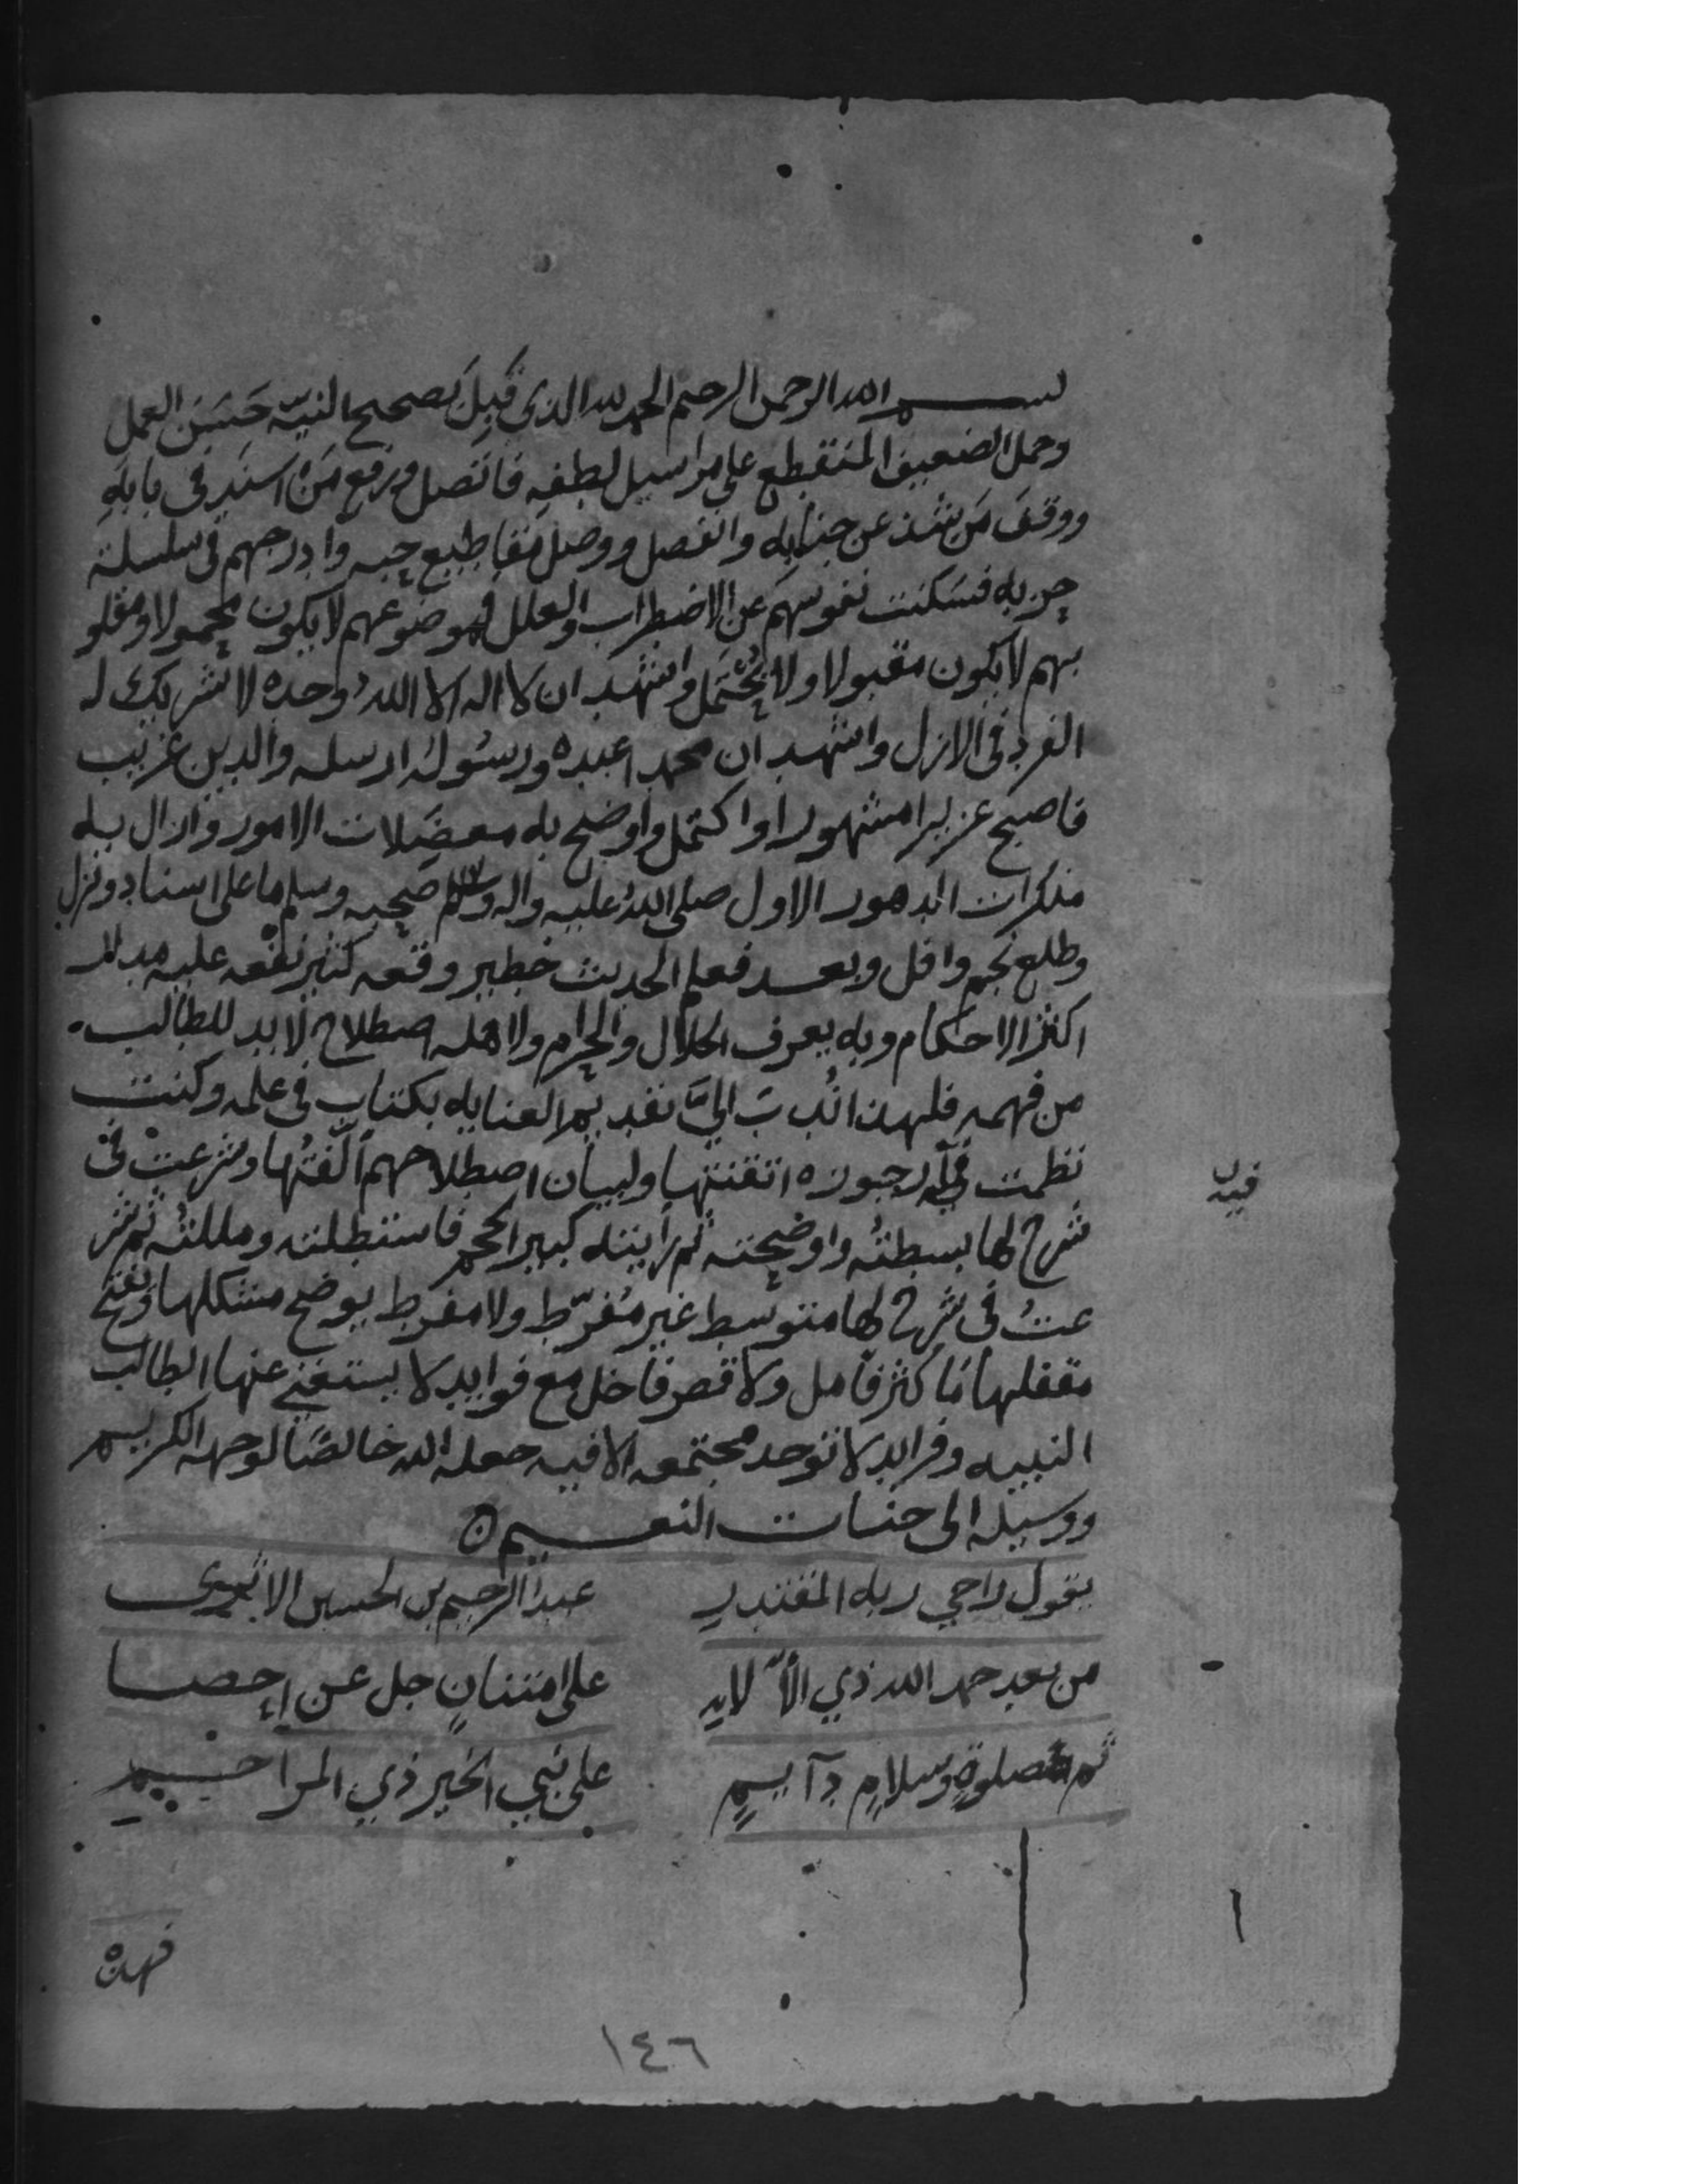 بســـم الله الرحمن الرحيم الحمد لله الذي قَبِلَ بصحيح النيّة حَسَنَ العمل
وحمل الضعيف المنقطع على مراسيل لطفه فاتصل ورفع مَن اسند في بابه
ووقف مَن شذ عن جنابه وانفصل ووصل مقاطيع حبه وادرجهم في سلسلة
حزبه فسكنت نفوسهم عن الاضطراب والعلل فموضوعهم لا يكون محمولا ومقلو
بهم لا يكون مقبولا ولا يُحْتَمل واشهد ان لا اله الا الله وحده لا شريك له
الفرد في الازل واشهد ان محمدا عبده ورسوله ارسله والدين غريب
فاصبح عزيزا مشهورا واكتمل واوضح به معضلات الامور وازال به
منكرات الدهور الاول صلى الله عليه واله وسلم صحبه وسلم ما على اسناد ونزل
وطلع نجم وافل وبعــد فعلم الحديث خطير وقعه كثير نفعه عليه مدار
اكثر الاحكام وبه يعرف الحلال والحرام ولاهله اصطلاح لا بد للطالب
من فهمه فلهذا نُدب الىَّ تقديم العنايه بكتاب في علمه وكنت
نظمت فيه ارجوزه اتقنتها ولبيان اصطلاحهم ألّفتُها وشرعت في
شرح لها بسطتُه واوضحته ثم رأيته كبير الحجم فاستطلته ومللتُه ثم شر
عتُ في شرح لها متوسط غير مُفرّط ولا مفرط يوضح مشكلها ويفتح
مقفلها مَا كثر فأمل ولا قصر فاخل مع فوايد لا يستغنى عنها الطالب
النبيه وفرايد لا توجد مجتمعه الا فيه جعله الله خالصًا لوجهه الكريم
ووسيله الى جنــات النعـــيم
يقول راجي ربه المقتدر عبد الرحيم بن الحسين الاثري
من بعد حمد الله ذي الألاء على امتنانٍ جل عن احصــا
ثم صلوةٍ وسلامٍ دآيــمٍ على نبي الخير ذي المراحــم
فيه
١
فهذه
١٤٦